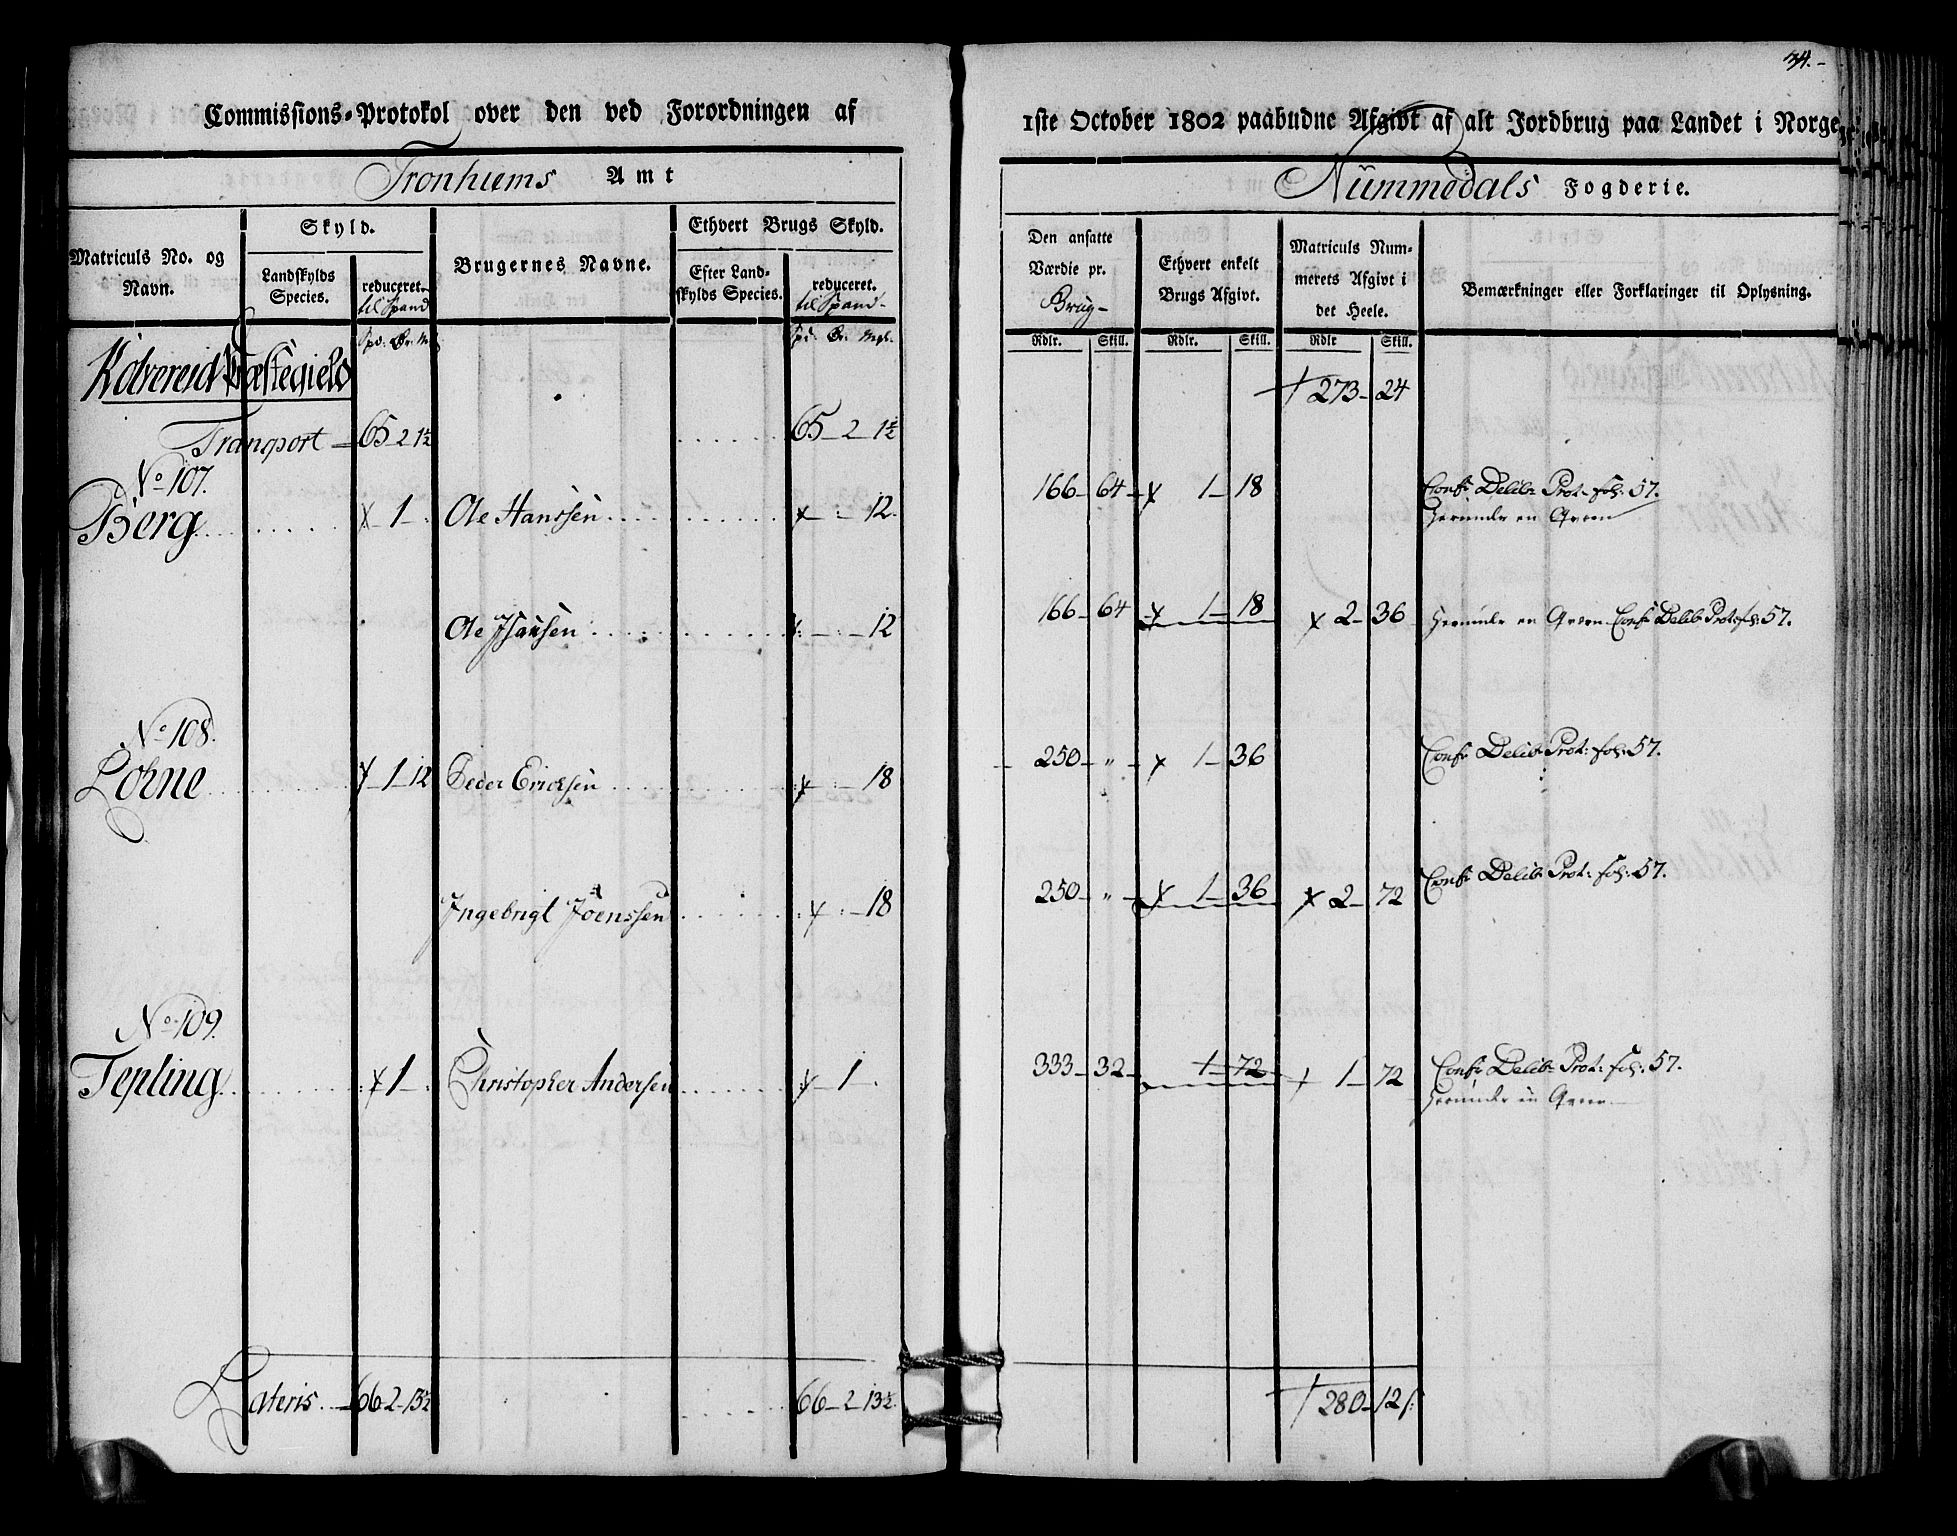 34.-
Commissions-Protokol over den ved Forordningen af 1ste October 1802 paabudne Afgivt af alt Jordbrug paa Landet i Norge
Tronhiems Amt
Nummedals Fogderie.
Matriculs No. og Navn.
Skyld.
Landskylds Species.
reduceret til Spand
Brugernes Navne.
Ethvert Brugs Skyld.
Efter Landskylds Species.
reduceret. til Spand-
Den ansatte Værdie pr. Brug-
Ethvert enkelt Brugs Afgivt.
Matriculs Nummerets Afgivt i det Heele.
Bemærkninger eller Forklaringer til Oplysning.
Rdlr. Skill. Rdlr. Skill. Rdlr Skill.
Kolvereid Præstegield 273-24
Transport - 65 2 1½ 65-2-1½
No 107.
Berg 1 Ole Hanssen 12. 166-64 1-18 Confr Delib: Prot: fol: 57.
herunder en Qvern
Ole Isaksen 12 166-64 1-18 2-36 herunder en Qvern Confr Delib: Prot: fol: 57.
No 108.
Lobne 1-12 Peder Erichsen 18 250-" 1-36 Confr Delib: Prot: fol: 57.
Ingebrigt Joenssen 18 250-" 1-36 2-72 Confr Delib: Prot: fol: 57.
No 109.
Tepling 1 Christopher Andersen 1 333-32 1-72 1-72 Confr Delib: Prot: fol: 57.
herunder en Qvern
Lateris. 66-2-13½ 66-2-13½. 280-12